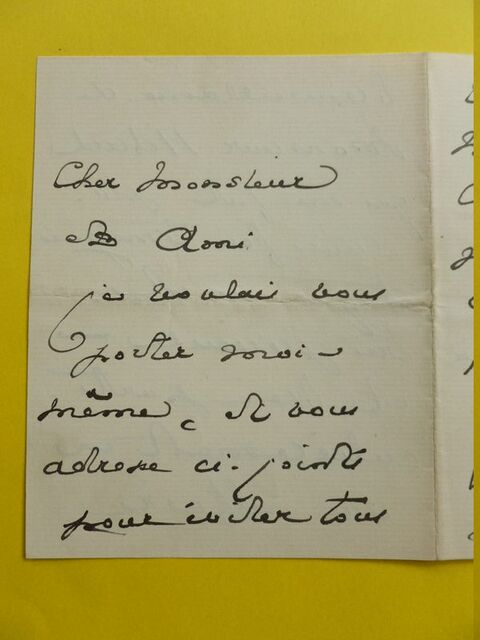 Cher Monsieur
et Ami
je voulais vous
porter moi-
même, et vous
adresse ci-jointe
pour éviter tous